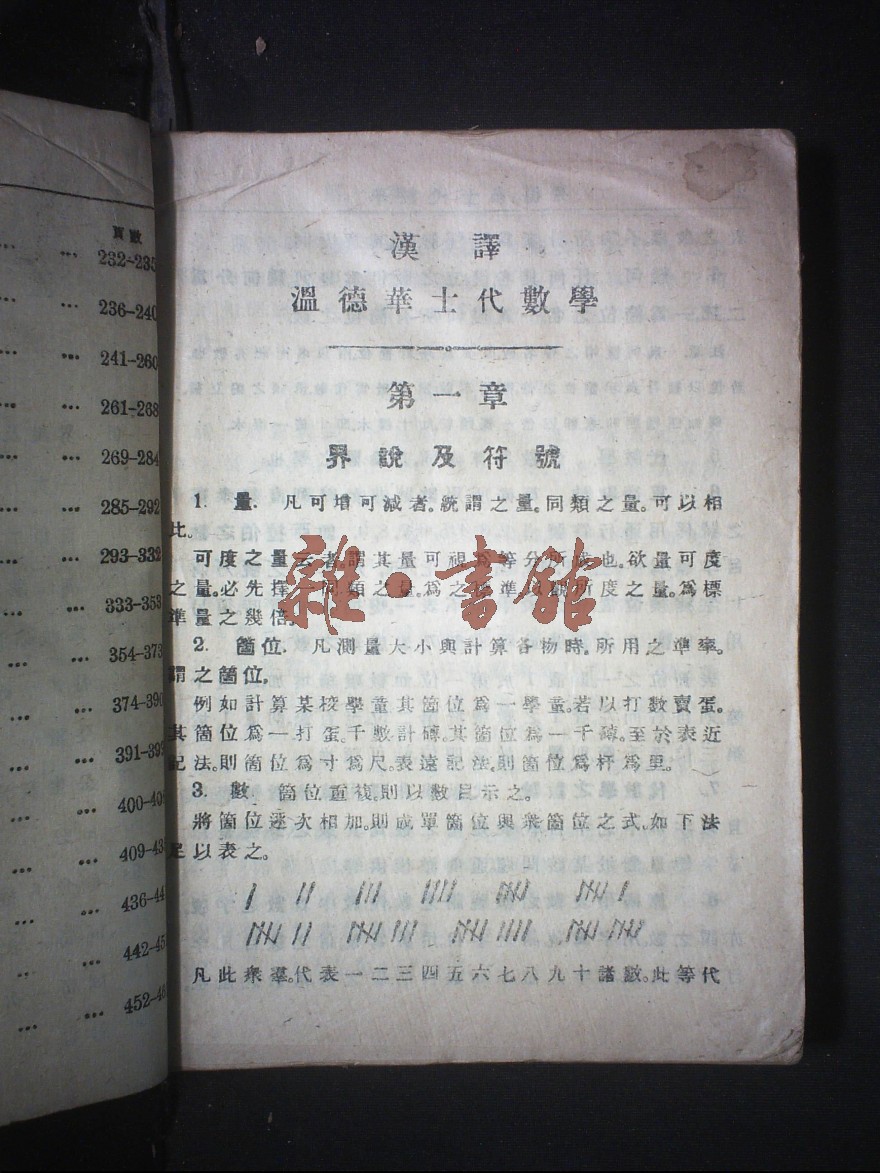 頁數
... ... 232-235
... ... 236-240
... ... 241-260
... ... 261-268
... ... 269-284
... ... 285-292
... ... 293-332
... ... 333-353
... ... 354-373
... ... 374-390
... ... 391-39
... ... 400-40
... ... 409-43
... ... 436-44
... ... 442-45
... ... 452-4
漢譯
溫德華士代數學
第一章
界說及符號
1. 量. 凡可增可減者。統謂之量。同類之量。可以相
比。
可度之量云者。謂其量可視爲等分所成也。欲量可度
之量。必先擇一同類之量。爲之標準。以觀所度之量。爲標
準量之幾倍。
2. 箇位. 凡測量大小與計算各物時。所用之準率。
謂之箇位。
例如計算某校學童其箇位爲一學童。若以打數賣蛋。
其箇位爲一打蛋。千數計磚。其箇位爲一千磚。至於表近
記法。則箇位爲寸爲尺。表遠記法。則箇位爲杆爲里。
3. 數. 箇位重複。則以數目示之。
將箇位逐次相加。則成單箇位與衆箇位之式。如下法
足以表之。
凡此衆羣。代表一二三四五六七八九十諸數。此等代
雜·書館